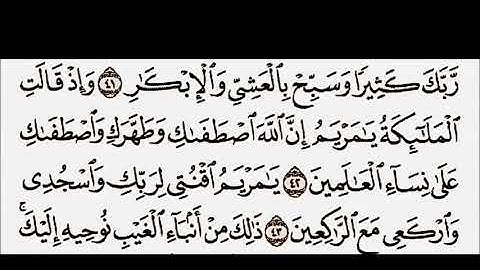 رَّبَّكَ كَثِيرًا وَسَبِّحْ بِٱلْعَشِىِّ وَٱلْإِبْكَٰرِ ٤١ وَإِذْ قَالَتِ
ٱلْمَلَٰٓئِكَةُ يَٰمَرْيَمُ إِنَّ ٱللَّهَ ٱصْطَفَىٰكِ وَطَهَّرَكِ وَٱصْطَفَىٰكِ
عَلَىٰ نِسَآءِ ٱلْعَٰلَمِينَ ٤٢ يَٰمَرْيَمُ ٱقْنُتِى لِرَبِّكِ وَٱسْجُدِى
وَٱرْكَعِى مَعَ ٱلرَّٰكِعِينَ ٤٣ ذَٰلِكَ مِنْ أَنۢبَآءِ ٱلْغَيْبِ نُوحِيهِ إِلَيْكَ ۚ